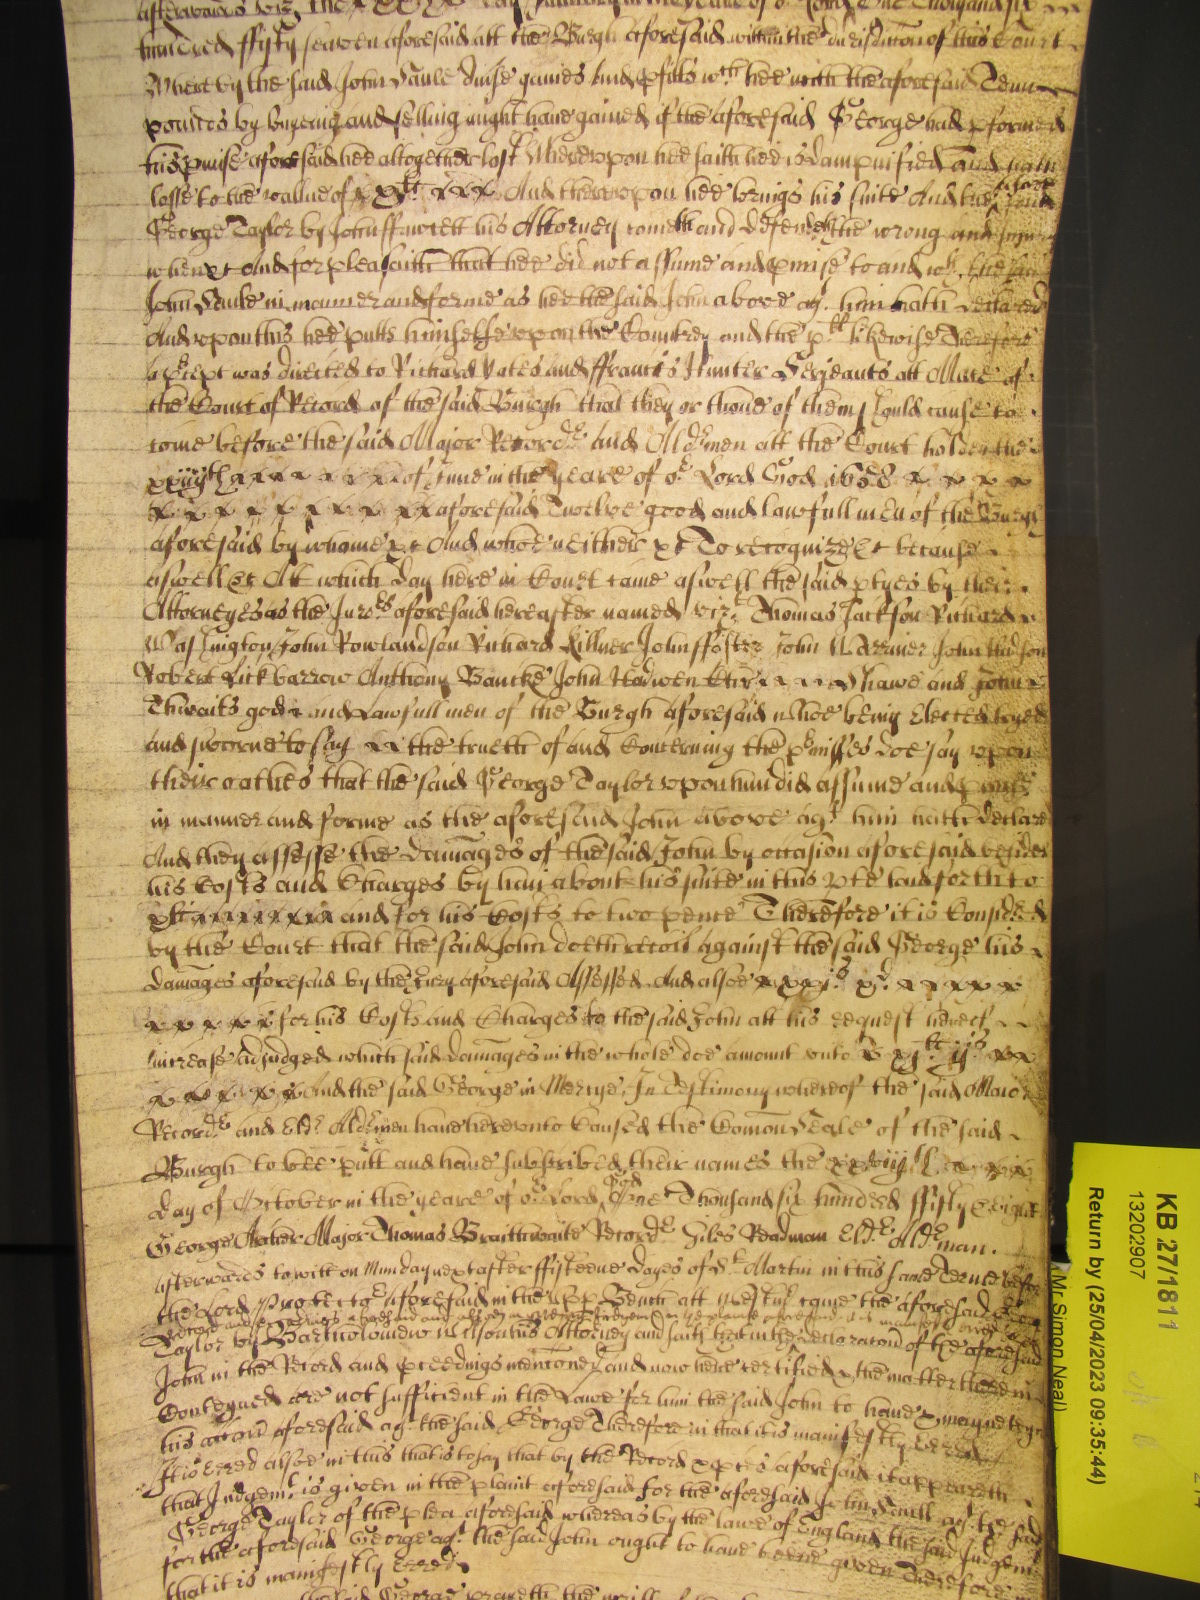 afterwards viz. the xxx day January in the yeare of o.r Lord One Thousand six
hundred ffifty seaven aforesaid att the Burgh aforesaid within the Jurisdiccon of this Court
Whereby the said John Saule diu'se gaines and p'fitts w.ch hee with the aforesaid Tenn
pounds by buyeing and selling might have gained if the aforesaid George had p'formed
his p'mise aforesaid hee altogether lost Whereupon hee saith hee is dampnified and hath
losse to the vallue of And thereupon hee brings his suite And the afore said
George Taylor by John ffawcett his Attorney cometh and defendeth the wrong and iniury
when &c And for plea saith that hee did not assume and p'mise to and w.th the said
John Saule in manner and forme as hee the said John above ag.t him hath declared
And upon this hee putts himselfe upon the Countrey and the p.lt likewise Therefore
a p'cept was directed to Richard Yates and ffrancis Hunter Serjeants att Mace of
the Court of Record of the said Burgh that they or th'one of them should cause to
come before the said Major Record.r and Ald.rmen att the Court holden the
of June in the yeare of o.r Lord God 1658
aforesaid Twelve good and lawfull men of the Burgh
aforesaid by whome &c And whoe neither &c To recognize &c because
aswell &c Att which day here in Court came aswell the said p'tyes by their
Attorneyes as the Juro.rs aforesaid hereafter named viz.t Thomas Jackson Richard
Washington John Rowlandson Richard Killner John ffoster John Warriner John Hudson
Robert Lickbarrow Anthony Bancke John Hadwen Shawe and John
Thwaits good and Lawfull men of the Burgh aforesaid whoe being Elected tryed
and sworne to say the trueth of and Concerning the p'misses doe say upon
their oathes that the said George Taylor upon him did assume and p'mise
in manner and forme as the aforesaid John above ag.t him hath declared
And they assesse the damages of the said John by occasion aforesaid besides
his Costs and Charges by him about his suite in this p'te laid forth to
and for his Costs to two pence Therefore it is Consid.red
by the Court that the said John doeth recov' against the said George his
damages aforesaid by the Jury aforesaid Assessed And alsoe
for his Costs and Charges to the said John att his request hereof
increase adjudged which said damages in the whole doe amount unto
And the said George in Mercye In Testimony whereof the said Maior
Record.r and Eld.r Ald.rmen have hereunto Caused the Comon Seale of the said
Burgh to bee putt and have subscribed their names the
day of October in the yeare of o.r Lord God One Thousand six hundred ffifty Eeight
George Archer Major Thomas Braithwaite Record.r Giles Readman Eld.r Ald.rman.
Afterwards to witt on Munday next after ffifteene dayes of S.t Martin in this same Terme before
the Lord Protecto.r aforesaid in the upp' Bench att Westm.r came the aforesaid George
Taylor by Bartholomew his Attorney and saith that in the
declaracon of the aforesaid
John in the Record and p'ceedings menconed and now here certified the matter therein
Conteyned are not sufficient in the Lawe for him the said John to have &
his accon aforesaid ag.t the said George Therefore in that it is manifestly Erred
It is Erred alsoe in this that is to say that by the Record aforesaid it appeareth
that Judgem.t is given in the plaint aforesaid for the aforesaid John Saule ag.t the said
George Taylor of the plea aforesaid whereas by the lawe of England the said Judgem.t
for the aforesaid George ag.t the said John ought to have beene given Therefore
that it is manifestly Erred
the said George prayeth the writt
KB 27/1811
13202907
Return by (25/04/2023 09:35:44)
Mr Simon Neal)